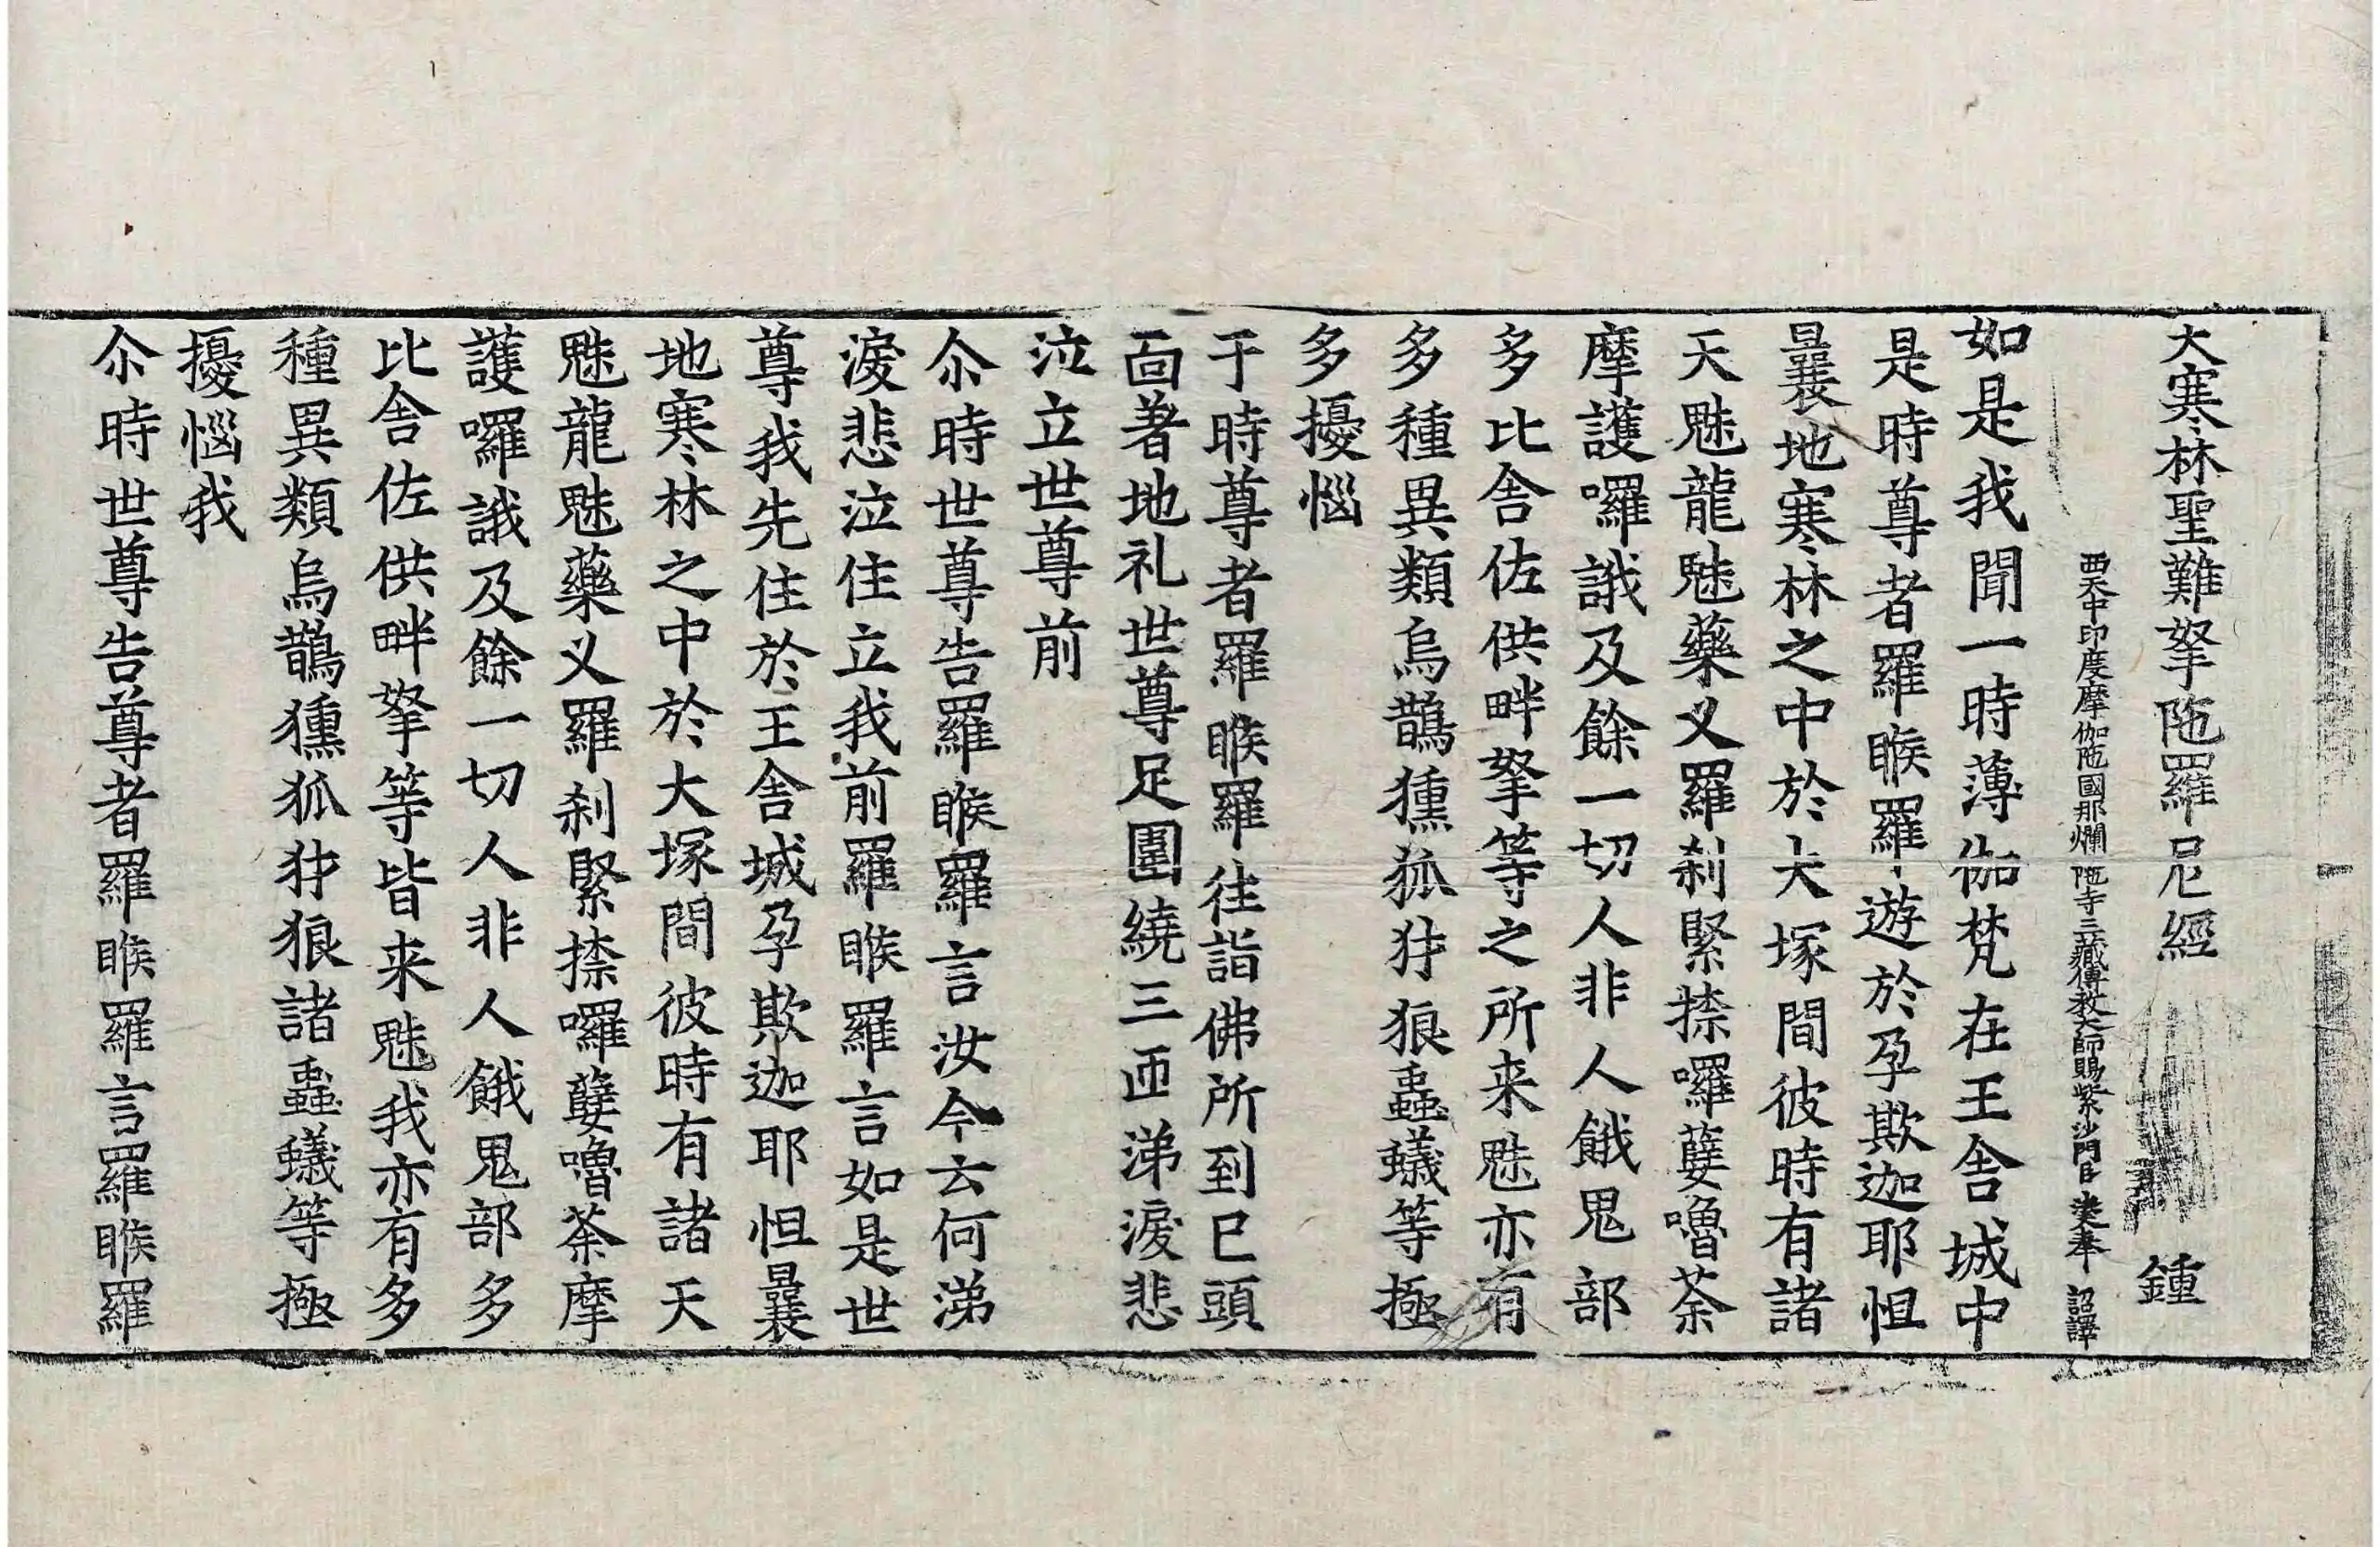 大寒林聖難拏陁羅尼經 鍾
西天中印度摩伽陁國那爛陁寺三藏傳教大師賜紫沙門臣 法天奉 詔譯
如是我聞一時薄伽梵在王舍城中
是時尊者羅睺羅遊於孕欺迦耶怛
曩地寒林之中於大塚間彼時有諸
天魅龍魅藥叉羅刹緊捺囉㜸嚕荼
摩護囉誐及餘一切人非人餓鬼部
多比舍佐供畔拏等之所来魅亦有
多種異類烏鵲獯狐犲狼蟲蟻等極
多擾惱
于時尊者羅睺羅往詣佛所到已頭
面著地礼世尊足圍繞三匝涕淚悲
泣立世尊前
尒時世尊告羅睺羅言汝今云何涕
淚悲泣住立我前羅睺羅言如是世
尊我先住於王舍城孕欺迦耶怛曩
地寒林之中於大塚間彼時有諸天
魅龍魅藥叉羅刹緊捺囉㜸嚕荼摩
護囉誐及餘一切人非人餓鬼部多
比舍佐供畔拏等皆来魅我亦有多
種異類烏鵲獯狐犲狼諸蟲蟻等極
擾惱我
尒時世尊告尊者羅睺羅言羅睺羅